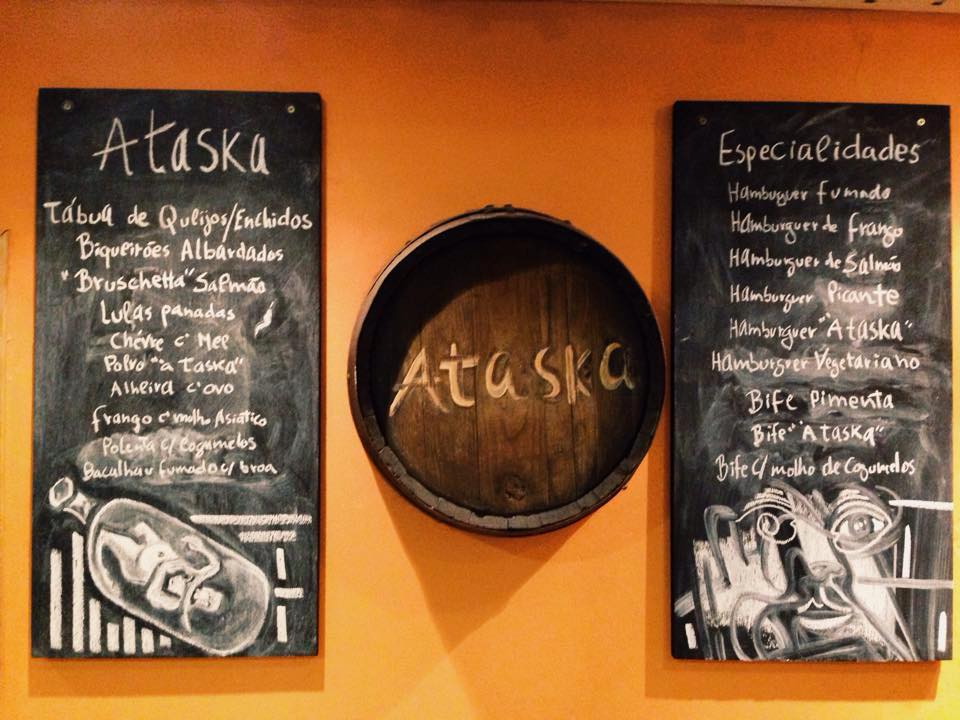 Ataska
Tábua de Queijos/Enchidos
Biqueirões Albardados
"Bruschetta" Salmão
Lulas panadas
Chévre c' Mel
Polvo "à Taska"
Alheira c' ovo
frango c' molho Asiático
Polenta c/ Cogumelos
Bacalhau fumado c/ broa
Ataska
Especialidades
Hamburguer fumado
Hamburguer de frango
Hamburguer de Salmão
Hamburguer Picante
Hamburguer "Ataska"
Hamburgrer Vegetariano
Bife Pimenta
Bife "Ataska"
Bife c/ molho de Cogumelos